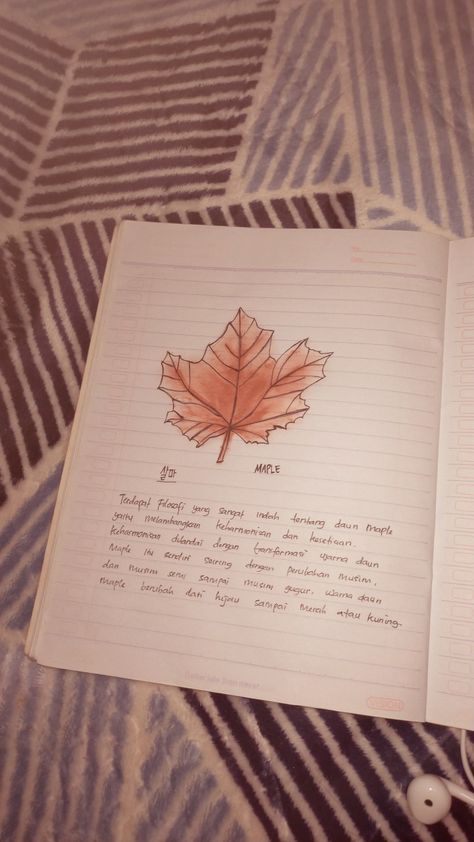 살파
MAPLE
Terdapat Filosofi yang sangat indah tentang daun maple
yaitu melambangkan keharmonisan dan kesetiaan.
keharmonisan ditandai dengan transformasi warna daun
Maple itu sendiri seiring dengan perubahan musim.
dan musim semi sampai musim gugur. warna daun
maple berubah dari hijau sampai merah atau kuning.
VISION